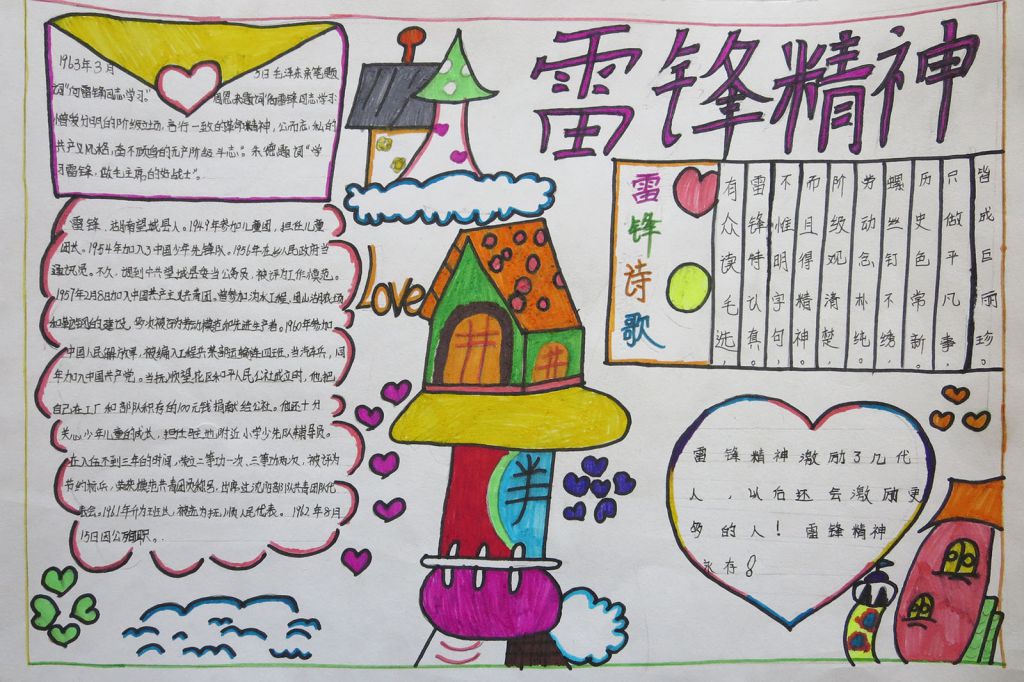 雷锋精神
1963年3月5日毛泽东亲笔题
词"向雷锋同志学习"。周恩来题词"向雷锋同志学习
憎爱分明的阶级立场,言行一致的革命精神,公而忘私的
共产主义风格,奋不顾身的无产阶级斗志。"朱德题词"学
习雷锋,做毛主席的好战士"。
雷锋,湖南望城县人。1949年参加儿童团,担任儿童
团长。1954年加入中国少年先锋队。1956年在乡人民政府当
通讯员。不久,调到中共望城县委当公务员,被评为工作模范。
1957年2月8日加入中国共产主义共青团。曾参加沩水工程、团山湖农场
和鞍钢的建设,多次被评为劳动模范和先进生产者。1960年参加
中国人民解放军,被编入工程兵某部运输连四班,当汽车兵,同
年加入中国共产党。当抚顺望花区和平人民公社成立时,他把
自己在工厂和部队积存的100元钱捐献给公社。他还十分
关心少年儿童的成长,担任驻地附近小学少先队辅导员。
在入伍不到三年的时间,荣立二等功一次、三等功两次,被评为
节约标兵,荣获模范共青团员称号,出席过沈阳部队共青团代
表会。1961年升为班长,被选为抚顺人民代表。1962年8月
15日因公殉职。
Love
雷锋诗歌
有众读毛选,
雷锋特认真。
不惟明字句,
而且得精神。
阶级观清楚,
劳动念朴纯。
螺丝钉不绣,
历史色常新。
只做平凡事,
皆成巨丽珍。
雷锋精神激励了几代
人,以后还会激励更
多的人!雷锋精神
永存